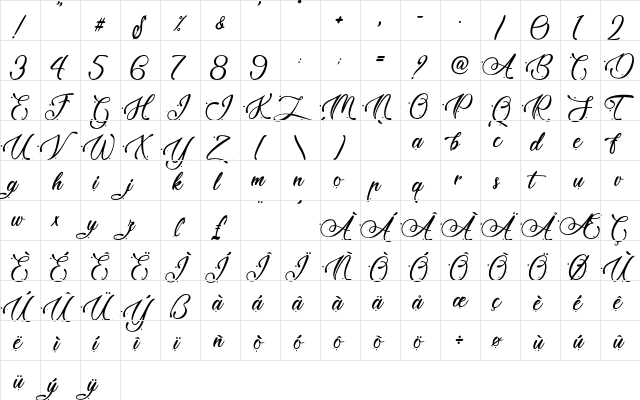 ! " # $ % & ' + , - . / 0 1 2
3 4 5 6 7 8 9 : ; = ? @ A B C D
E F G H I J K L M N O P Q R S T
U V W X Y Z [ \ ] a b c d e f
g h i j k l m n o p q r s t u v
w x y z ¢ £ ¨ ´ À Á Â Ã Ä Å Æ Ç
È É Ê Ë Ì Í Î Ï Ñ Ò Ó Ô Õ Ö Ø Ù
Ú Û Ü Ý ß à á â ã ä å æ ç è é ê
ë ì í î ï ñ ò ó ô õ ö ÷ ø ù ú û
ü ý ÿ